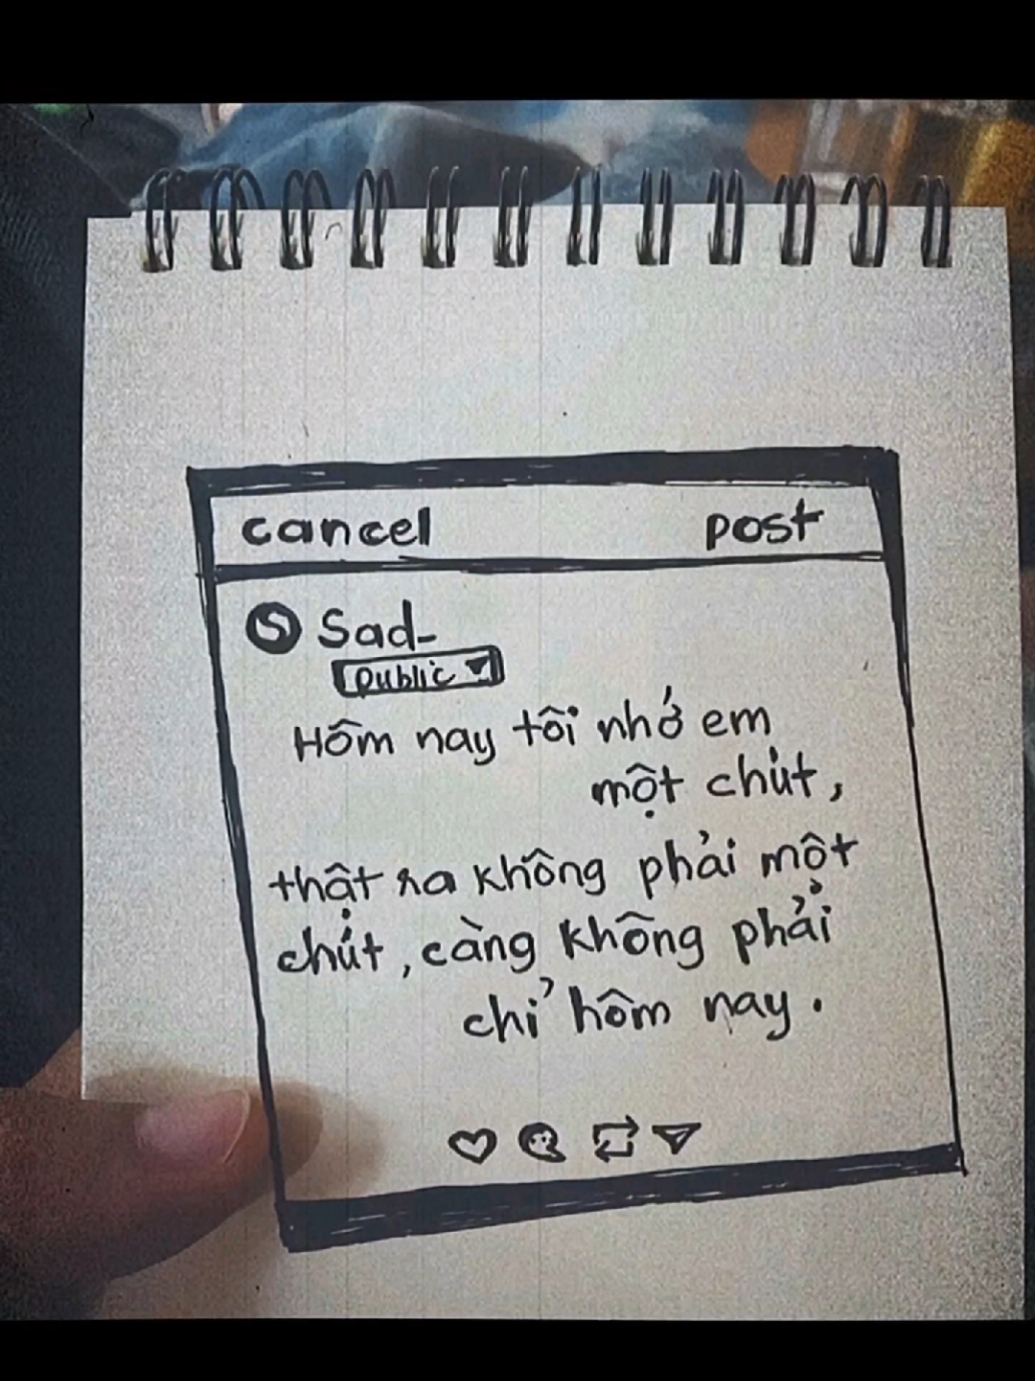 cancel post
S Sad-
public
Hôm nay tôi nhớ em
một chút,
thật ra không phải một
chút, càng không phải
chỉ hôm nay.